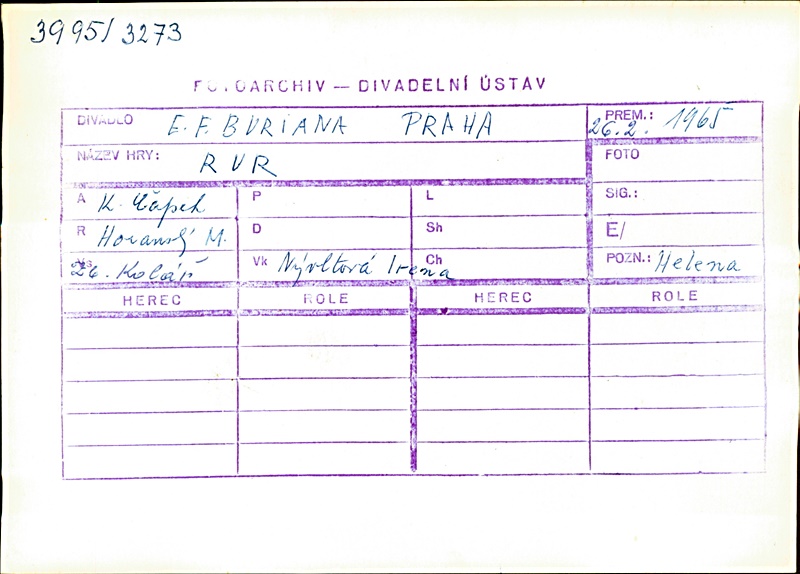 3995/3273
FOTOARCHIV — DIVADELNÍ ÚSTAV
DIVADLO E. F. BURIANA PRAHA
PREM.: 26.2. 1965
NÁZEV HRY: RUR
FOTO
A K. Čapek
P
L
SIG.:
R Horanský M.
D
Sh
E/
Zb. Kolář
Vk Nývltová Irena
Ch
POZN.: Helena
HEREC ROLE HEREC ROLE